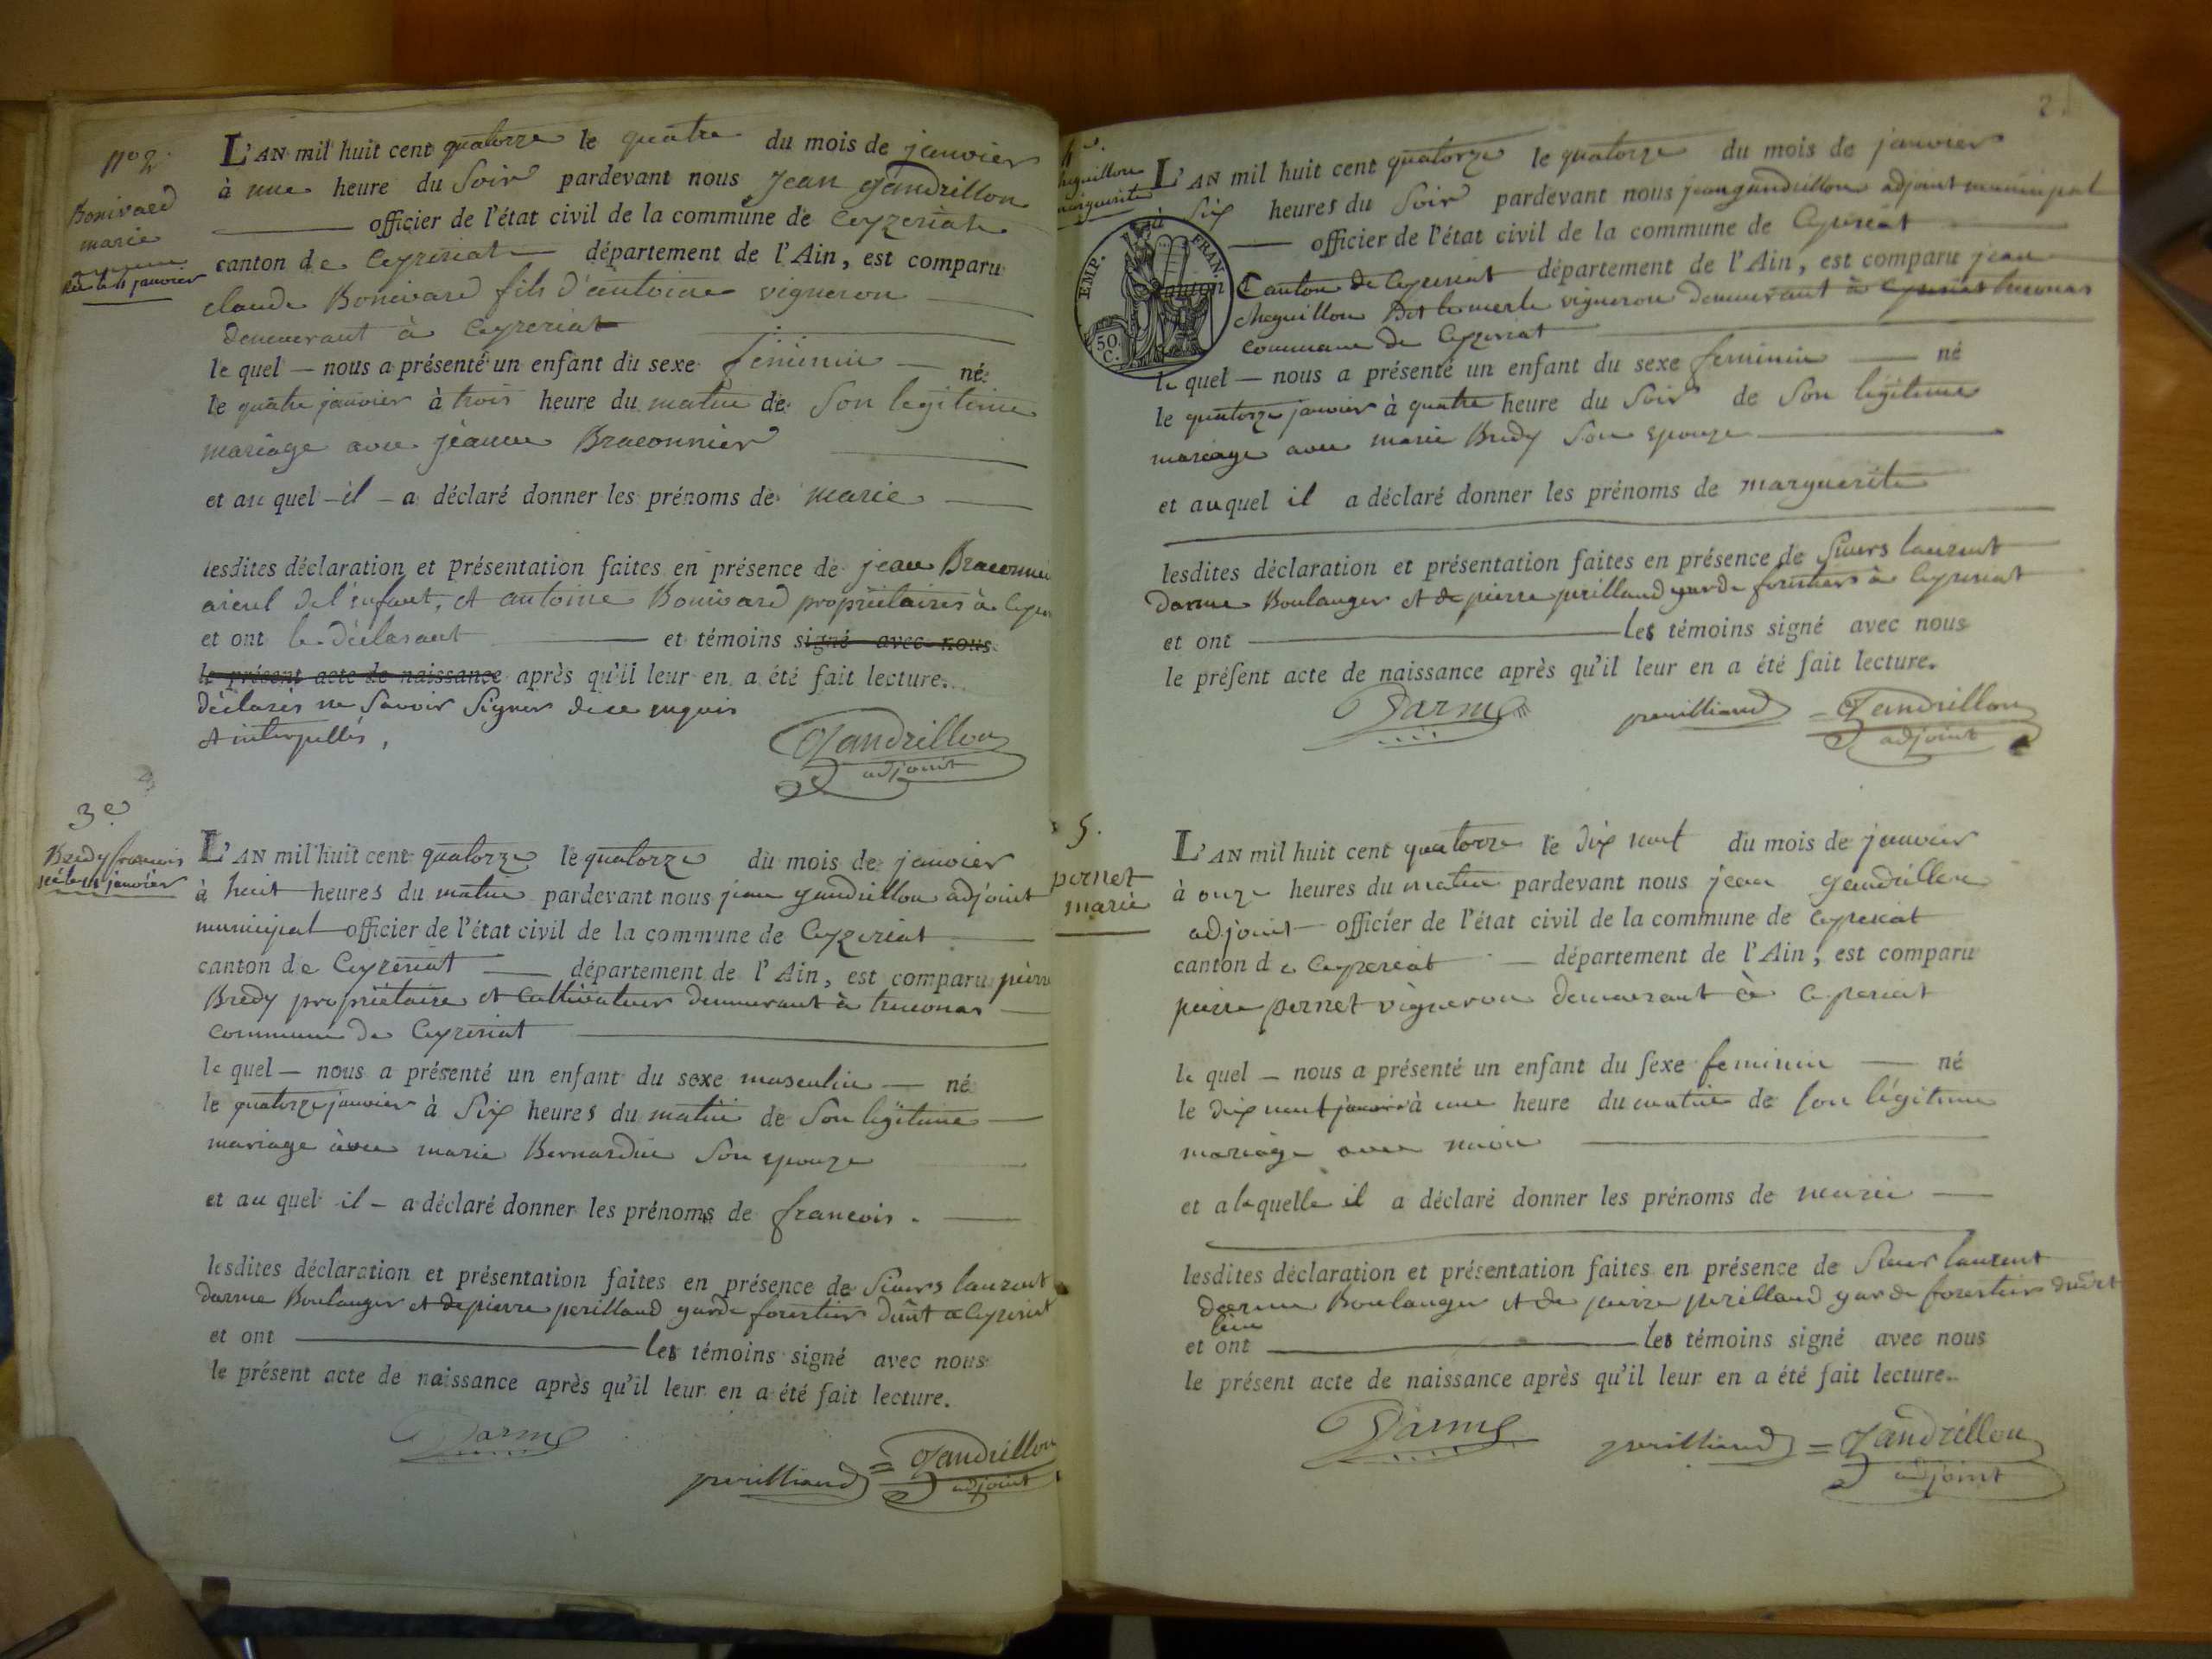 nº 2
Bonivard
marie
née le 4 janvier
L'AN mil huit cent quatorze le quatre du mois de janvier
à une heure du Soir pardevant nous Jean gandrillon
officier de l'état civil de la commune de Ceyzeriat
canton de Ceyzeriat département de l'Ain, est comparu
claude Bonivard fils d'antoine vigneron
demeurant à Ceyzeriat
le quel — nous a présenté un enfant du sexe feminin — né
le quatre janvier à trois heure du matin de Son legitime
mariage avec jeanne Braconnier
et au quel – il – a déclaré donner les prénoms de marie
lesdites déclaration et présentation faites en présence de jean Braconnier
aieul del'enfant, et antoine Bonivard propriétaires à Ceyzer
et ont le déclarant — et témoins signé avec nous
le présent acte de naissance après qu'il leur en a été fait lecture.
déclarés ne Savoir Signer de ce enquis
et interpellés,
Gandrillon
adjoint
3e
Bredy francois
né le 14 janvier
L'AN mil huit cent quatorze le quatorze du mois de janvier
à huit heures du matin pardevant nous jean gandrillon adjoint
municipal officier de l'état civil de la commune de Ceyzeriat
canton de Ceyzeriat — département de l'Ain, est comparu pierre
Bredy propriétaire et Cultivateur demeurant à treconas
commune de Ceyzeriat
le quel — nous a présenté un enfant du sexe masculin — né
le quatorze janvier à Six heures du matin de Son legitime
mariage avec marie Bernardin Son epouze
et au quel il – a déclaré donner les prénoms de francois.
lesdites déclaration et présentation faites en présence de Sieurs laurent
darme Boulanger et de pierre perilland garde forestier duût a Ceyzeriat
et ont — les témoins signé avec nous
le présent acte de naissance après qu'il leur en a été fait lecture.
Darme
perilliand = Gandrillon
adjoint
2
4e.
cheguillon
marguerite
L'AN mil huit cent quatorze le quatorze du mois de janvier
à Six heures du Soir pardevant nous jean gandrillon adjoint municipal
officier de l'état civil de la commune de Ceyzeriat
EMP. FRAN.
50
C.
Canton de Ceyzeriat département de l'Ain, est comparu jean
cheguillon Dit lemerle vigneron demeurant à Ceyzeriat treconas
commune de Ceyzeriat
le quel — nous a présenté un enfant du sexe feminin — né
le quatorze janvier à quatre heure du Soir de Son légitime
mariage avec marie Bredy Son epouze
et auquel il a déclaré donner les prénoms de marguerite
lesdites déclaration et présentation faites en présence de Sieurs laurent
darme Boulanger et de pierre perilland garde forestier à Ceyzeriat
et ont — les témoins signé avec nous
le présent acte de naissance après qu'il leur en a été fait lecture.
Darme perilliand = Gandrillon
adjoint
5.
pernet
marie
L'AN mil huit cent quatorze le dix neuf du mois de janvier
à onze heures du matin pardevant nous jean gandrillon
adjoint officier de l'état civil de la commune de Ceyzeriat
canton de Ceyzeriat — département de l'Ain, est comparu
pierre pernet vigneron demeurant à Ceyzeriat
le quel — nous a présenté un enfant du sexe feminin — né
le dix neuf janvier à une heure du matin de son légitime
mariage avec
et a laquelle il a déclaré donner les prénoms de marie
lesdites déclaration et présentation faites en présence de Sieur laurent
darme Boulanger et de pierre perilland garde forestier duût
lieu
et ont — les témoins signé avec nous
le présent acte de naissance après qu'il leur en a été fait lecture.
Darme perilliand = Gandrillon
adjoint